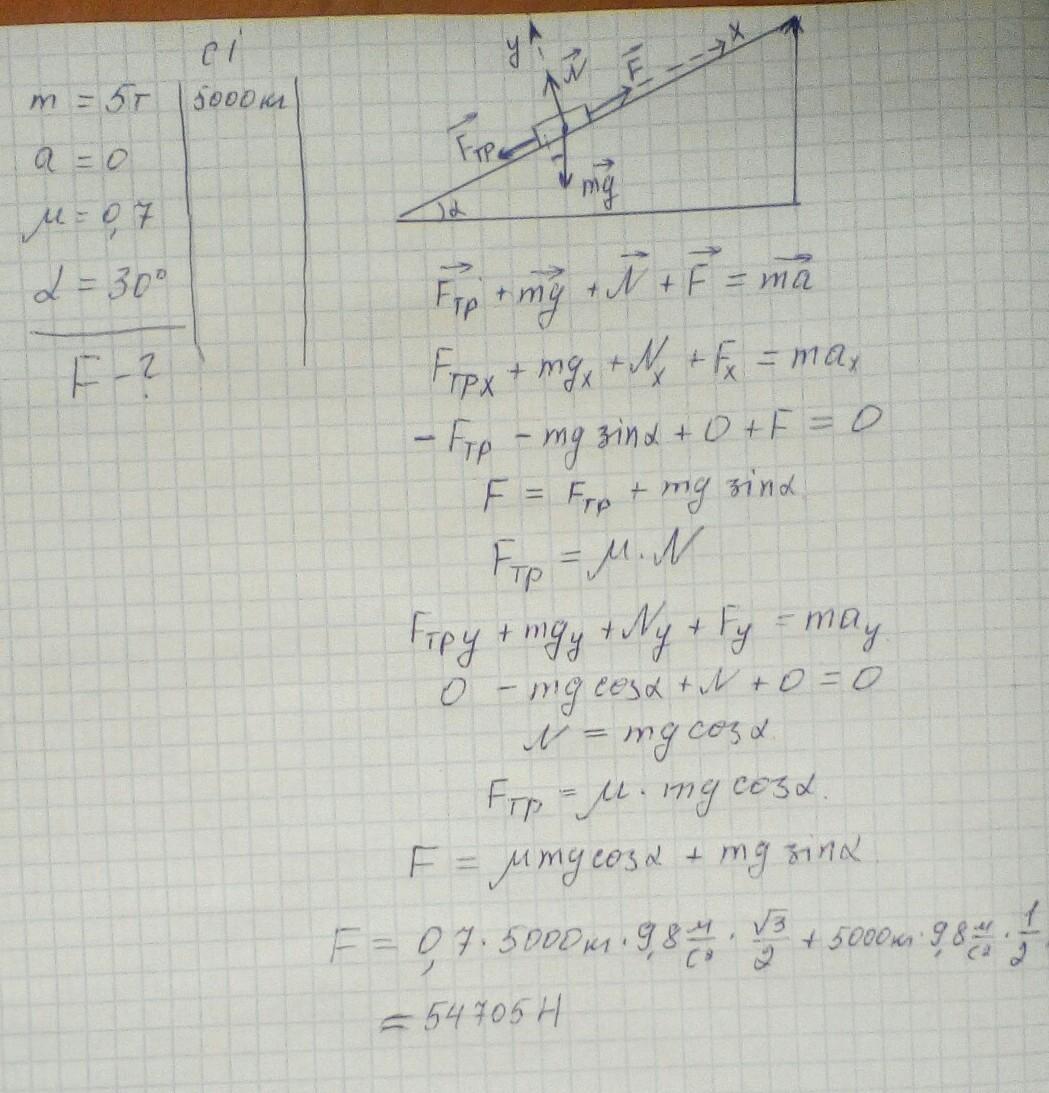 си
m = 5т | 5000 кг
a = 0
μ = 0,7
α = 30°
F - ?
y N F x
Fтр
mg
α
Fтр + mg + N + F = ma
Fтрx + mgx + Nx + Fx = max
- Fтр - mg sinα + 0 + F = 0
F = Fтр + mg sinα
Fтр = μ · N
Fтрy + mgy + Ny + Fy = may
0 - mg cosα + N + 0 = 0
N = mg cosα
Fтр = μ · mg cosα.
F = μmg cosα + mg sinα
F = 0,7 · 5000кг · 9,8 м/с² · √3/2 + 5000кг · 9,8 м/с² · 1/2
= 54705 Н